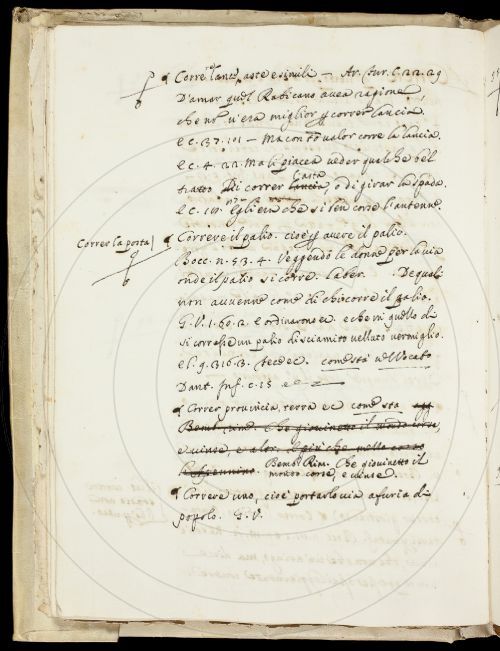 Corre lance, aste e simili — Ar. fur. c. 22. 29
D'amar quel Rabicano avea ragione,
che non v'era miglior correr lancia.
e c. 37. 101 — Ma con tal valor corre la lancia.
e c. 4. 22. Ma li piacea veder qualche bel
tratto Di correr lancia l'asta, o di girar la spada.
e c. Egli era che si ben corre l'antenne.
Correr la posta
Correre il palio. cioè avere il palio.
Bocc. n. 53. 4. Veggendo le donne per la via
onde il palio si corre. Laber. De quali
non avvenne come di chi corre il palio.
G. V. 1. 60. 2. e ordinarono ec. e che in quello di
si corresse un palio di sciamito velluto vermiglio.
e l. 9. 316. 3. fece ec. come sta nell Vocabo
Dant. Inf. c. 15 e c
Correr provincia, terra e c come sta
Bemb. rim. Che giovinetto il mondo corse,
e vinse, e
Bemb. Rim. Che giovinetto il
mondo corse, e vinse.
Correre uno, cioè portarlo via a furia di
popolo. G. V.